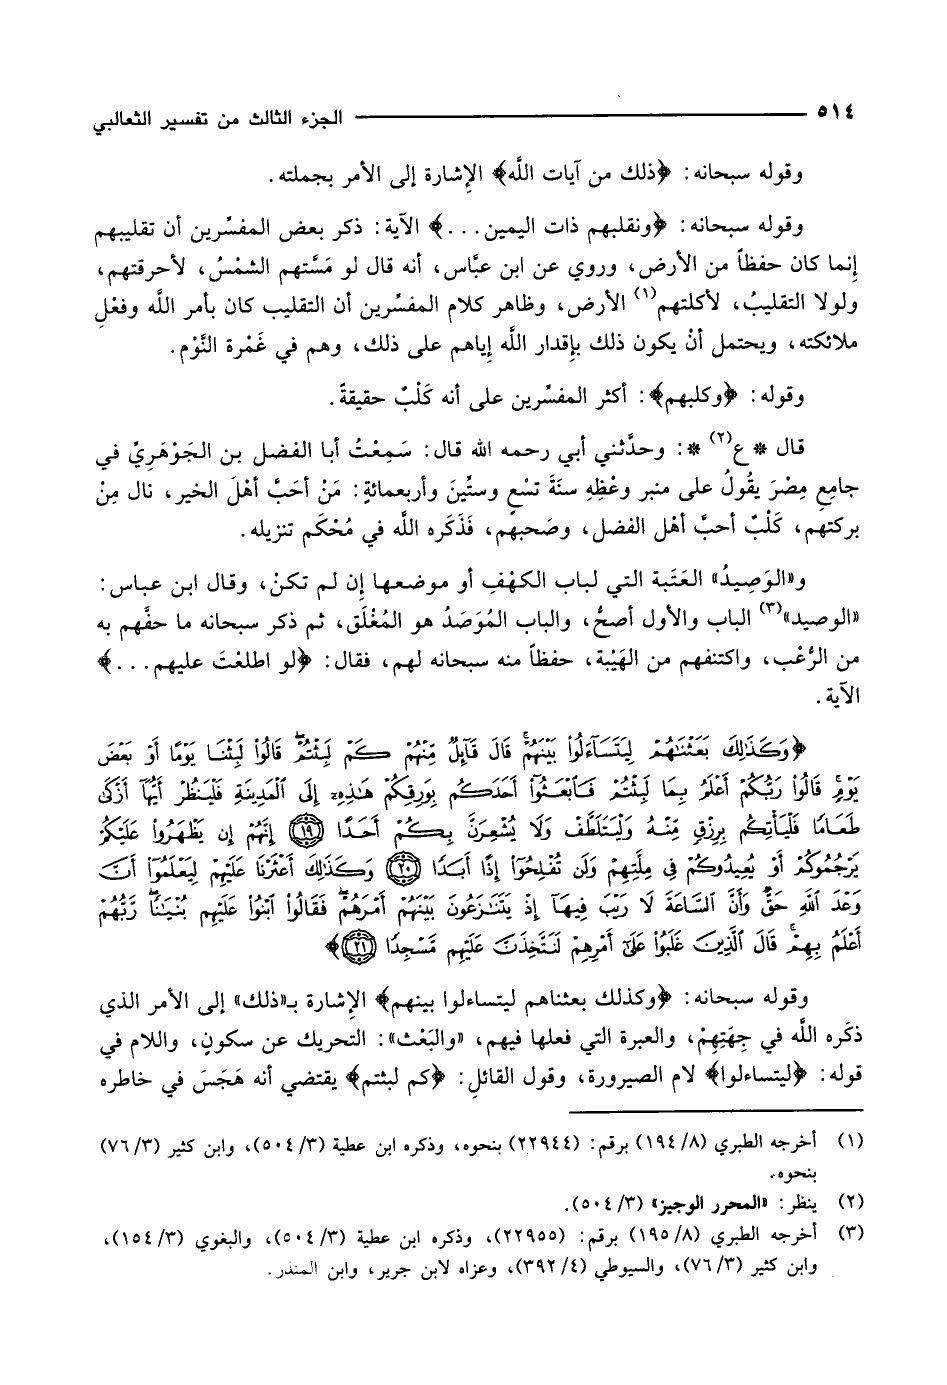 ٥١٤ الجزء الثالث من تفسير الثعالبي
وقوله سبحانه: ﴿ذلك من آيات اللَّه﴾ الإِشارة إلى الأمر بجملته.
وقوله سبحانه: ﴿ونقلبهم ذات اليمين...﴾ الآية: ذكر بعض المفسِّرين أن تقليبهم
إنما كان حفظاً من الأرض، وروي عن ابن عبَّاس، أنه قال لو مَسَّتهم الشمْسُ، لأحرقتهم،
ولولا التقليبُ، لأكلتهم(١) الأرض، وظاهر كلام المفسِّرين أن التقليب كان بأمر الله وفعْلِ
ملائكته، ويحتمل أنْ يكون ذلك بإقدار اللَّه إياهم على ذلك، وهم في غَمْرة النَّوْم.
وقوله: ﴿وكلبهم﴾: أكثر المفسِّرين على أنه كَلْبٌ حقيقةً.
قال * ع(٢) *: وحدَّثني أبي رحمه الله قال: سَمِعْتُ أبا الفضل بن الجَوْهَرِيِّ في
جامِعِ مِصْرَ يقُولُ على منبر وعْظِهِ سنَةَ تسْعٍ وستِّينَ وأربعمائةٍ: مَنْ أحَبَّ أهْلَ الخير، نال مِنْ
بركتهم، كَلْبٌ أحبَّ أهْل الفضل، وصَحبهُم، فَذَكَره اللَّه في مُحْكَم تنزيله.
و«الوَصِيدُ» العَتَبة التي لباب الكهْفِ أو موضعها إن لم تكنْ، وقال ابن عباس:
«الوصيد»(٣) الباب والأول أصحُّ، والباب المُوَصَدُ هو المُغْلَق، ثم ذكر سبحانه ما حفَّهم به
من الرُّعْب، واكتنفهم من الهَيْبة، حفظاً منه سبحانه لهم، فقال: ﴿لو اطلعْتَ عليهم...﴾
الآية.
﴿وَكَذَٰلِكَ بَعَثْنَٰهُمْ لِيَتَسَآءَلُوا۟ بَيْنَهُمْ ۚ قَالَ قَآئِلٌ مِّنْهُمْ كَمْ لَبِثْتُمْ ۖ قَالُوا۟ لَبِثْنَا يَوْمًا أَوْ بَعْضَ
يَوْمٍ ۚ قَالُوا۟ رَبُّكُمْ أَعْلَمُ بِمَا لَبِثْتُمْ فَٱبْعَثُوٓا۟ أَحَدَكُم بِوَرِقِكُمْ هَٰذِهِۦٓ إِلَى ٱلْمَدِينَةِ فَلْيَنظُرْ أَيُّهَآ أَزْكَىٰ
طَعَامًا فَلْيَأْتِكُم بِرِزْقٍ مِّنْهُ وَلْيَتَلَطَّفْ وَلَا يُشْعِرَنَّ بِكُمْ أَحَدًا ﴿١٩﴾ إِنَّهُمْ إِن يَظْهَرُوا۟ عَلَيْكُمْ
يَرْجُمُوكُمْ أَوْ يُعِيدُوكُمْ فِى مِلَّتِهِمْ وَلَن تُفْلِحُوٓا۟ إِذًا أَبَدًا ﴿٢٠﴾ وَكَذَٰلِكَ أَعْثَرْنَا عَلَيْهِمْ لِيَعْلَمُوٓا۟ أَنَّ
وَعْدَ ٱللَّهِ حَقٌّ وَأَنَّ ٱلسَّاعَةَ لَا رَيْبَ فِيهَآ إِذْ يَتَنَٰزَعُونَ بَيْنَهُمْ أَمْرَهُمْ ۖ فَقَالُوا۟ ٱبْنُوا۟ عَلَيْهِم بُنْيَٰنًا ۖ رَّبُّهُمْ
أَعْلَمُ بِهِمْ ۚ قَالَ ٱلَّذِينَ غَلَبُوا۟ عَلَىٰٓ أَمْرِهِمْ لَنَتَّخِذَنَّ عَلَيْهِم مَّسْجِدًا ﴿٢١﴾﴾
وقوله سبحانه: ﴿وكذلك بعثناهم ليتساءلوا بينهم﴾ الإِشارة بـ«ذلك» إلى الأمر الذي
ذكَره اللَّه في جِهَتِهِمْ، والعبرة التي فعلها فيهم، «والبَعْث»: التحريك عن سكونٍ، واللام في
قوله: ﴿ليتساءلوا﴾ لام الصيرورة، وقول القائل: ﴿كم لبثتم﴾ يقتضي أنه هَجَسَ في خاطره
(١) أخرجه الطبري (٨/ ١٩٤) برقم: (٢٢٩٤٤) بنحوه، وذكره ابن عطية (٣/ ٥٠٤)، وابن كثير (٣/ ٧٦)
بنحوه.
(٢) ينظر: «المحرر الوجيز» (٣/ ٥٠٤).
(٣) أخرجه الطبري (٨/ ١٩٥) برقم: (٢٢٩٥٥)، وذكره ابن عطية (٣/ ٥٠٤)، والبغوي (٣/ ١٥٤)،
وابن كثير (٣/ ٧٦)، والسيوطي (٤/ ٣٩٢)، وعزاه لابن جرير، وابن المنذر.